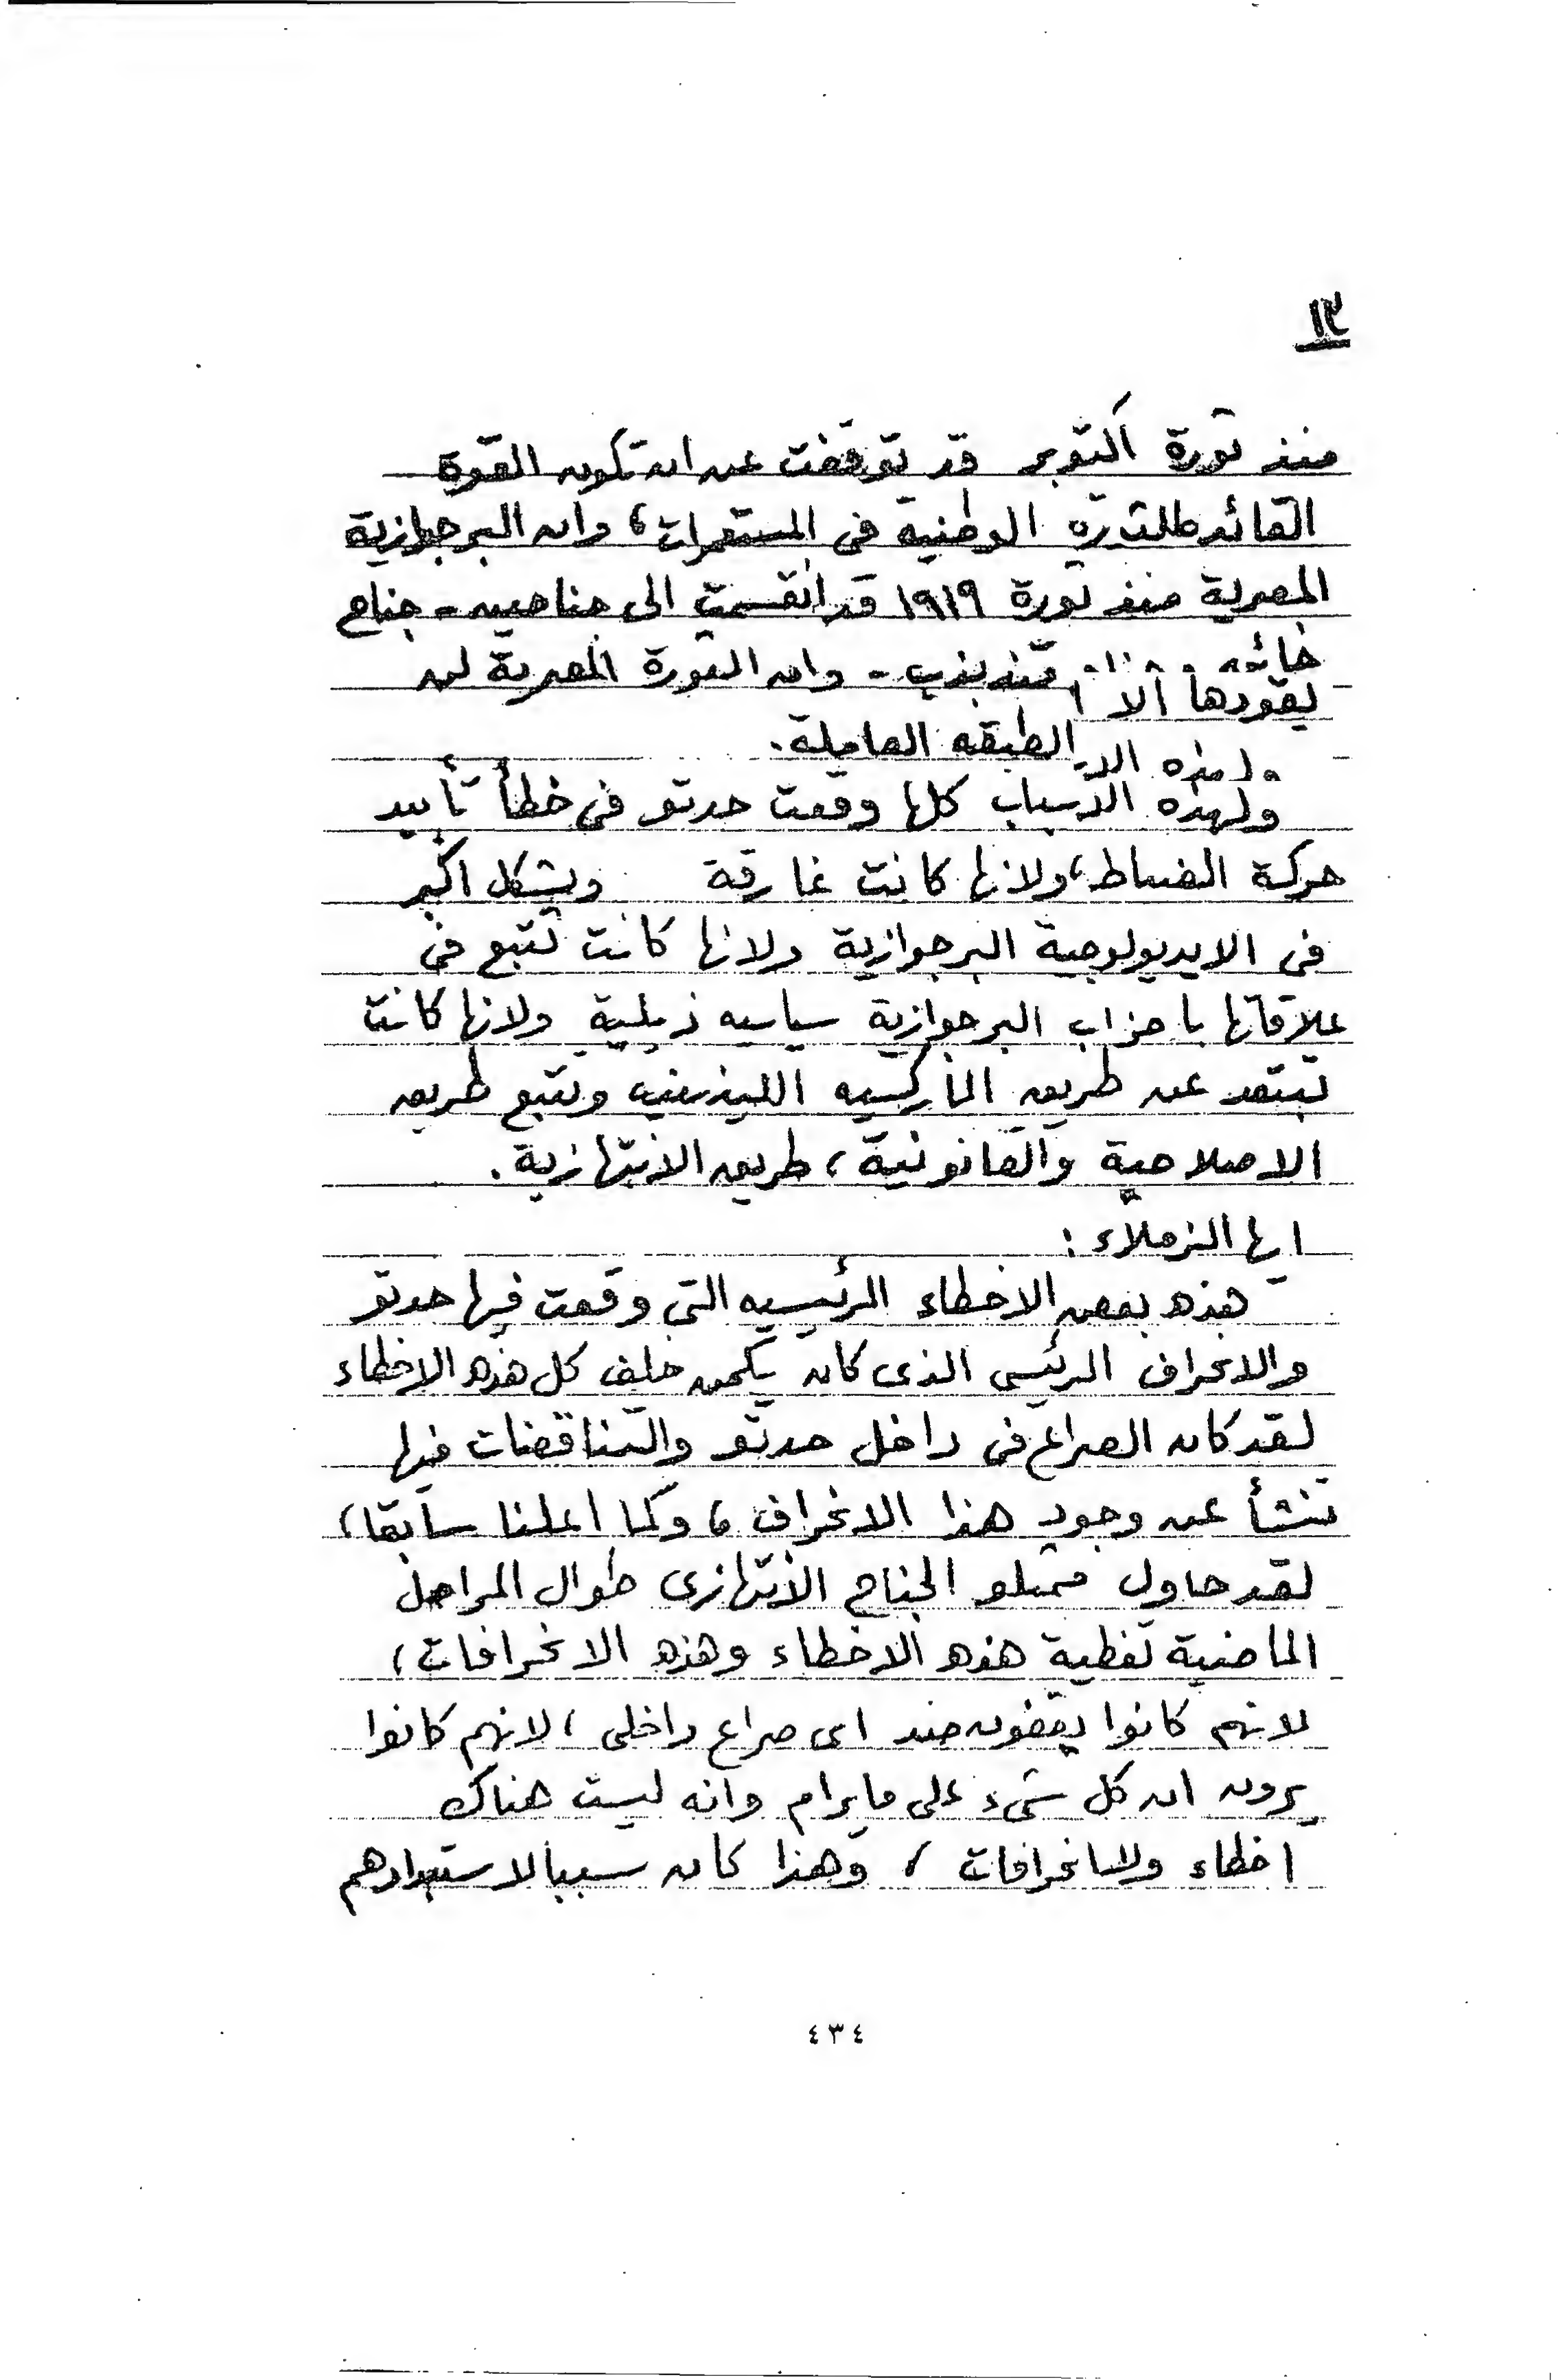 ١٢
منذ ثورة أكتوبر قد توقفت عن ان تكون القوة
القائده للثوره الوطنية فى المستعمرات، وان البرجوازية
المصرية منذ ثورة ١٩١٩ قد انقسمت الى جناحين - جناح
خائن متذبذب - وان الثورة المصرية لن
يقودها الا الطبقه العاملة.
ولهذه الاسباب كلها وقعت حدتو فى خطأ تأييد
حركة الضباط، ولانها كانت غارقة وبشكل اكبر
فى الايديولوجية البرجوازية ولانها كانت تتبع فى
علاقاتها باحزاب البرجوازية سياسيه ذيلية ولانها كانت
تبتعد عن طريق الماركسيه اللينينيه وتتبع طريق
الاصلاحية والقانونية، طريق الانتهازية.
ايها الزملاء :
هذه بعض الاخطاء الرئيسيه التى وقعت فيها حدتو
والانحراف الرئيسى الذى كان يكمن خلف كل هذه الاخطاء
لقد كان الصراع فى داخل حدتو والتناقضات فيها
تنشأ عن وجود هذا الانحراف، وكما اعلنا سابقا،
لقد حاول ممثلو الجناح الانتهازى طوال المراحل
الماضية تغطية هذه الاخطاء وهذه الانحرافات،
لانهم كانوا يقفون ضد اى صراع داخلى، لانهم كانوا
يرون ان كل شىء على مايرام وانه ليست هناك
اخطاء ولا انحرافات، وهذا كان سببا لاستبدادهم
٤٣٤